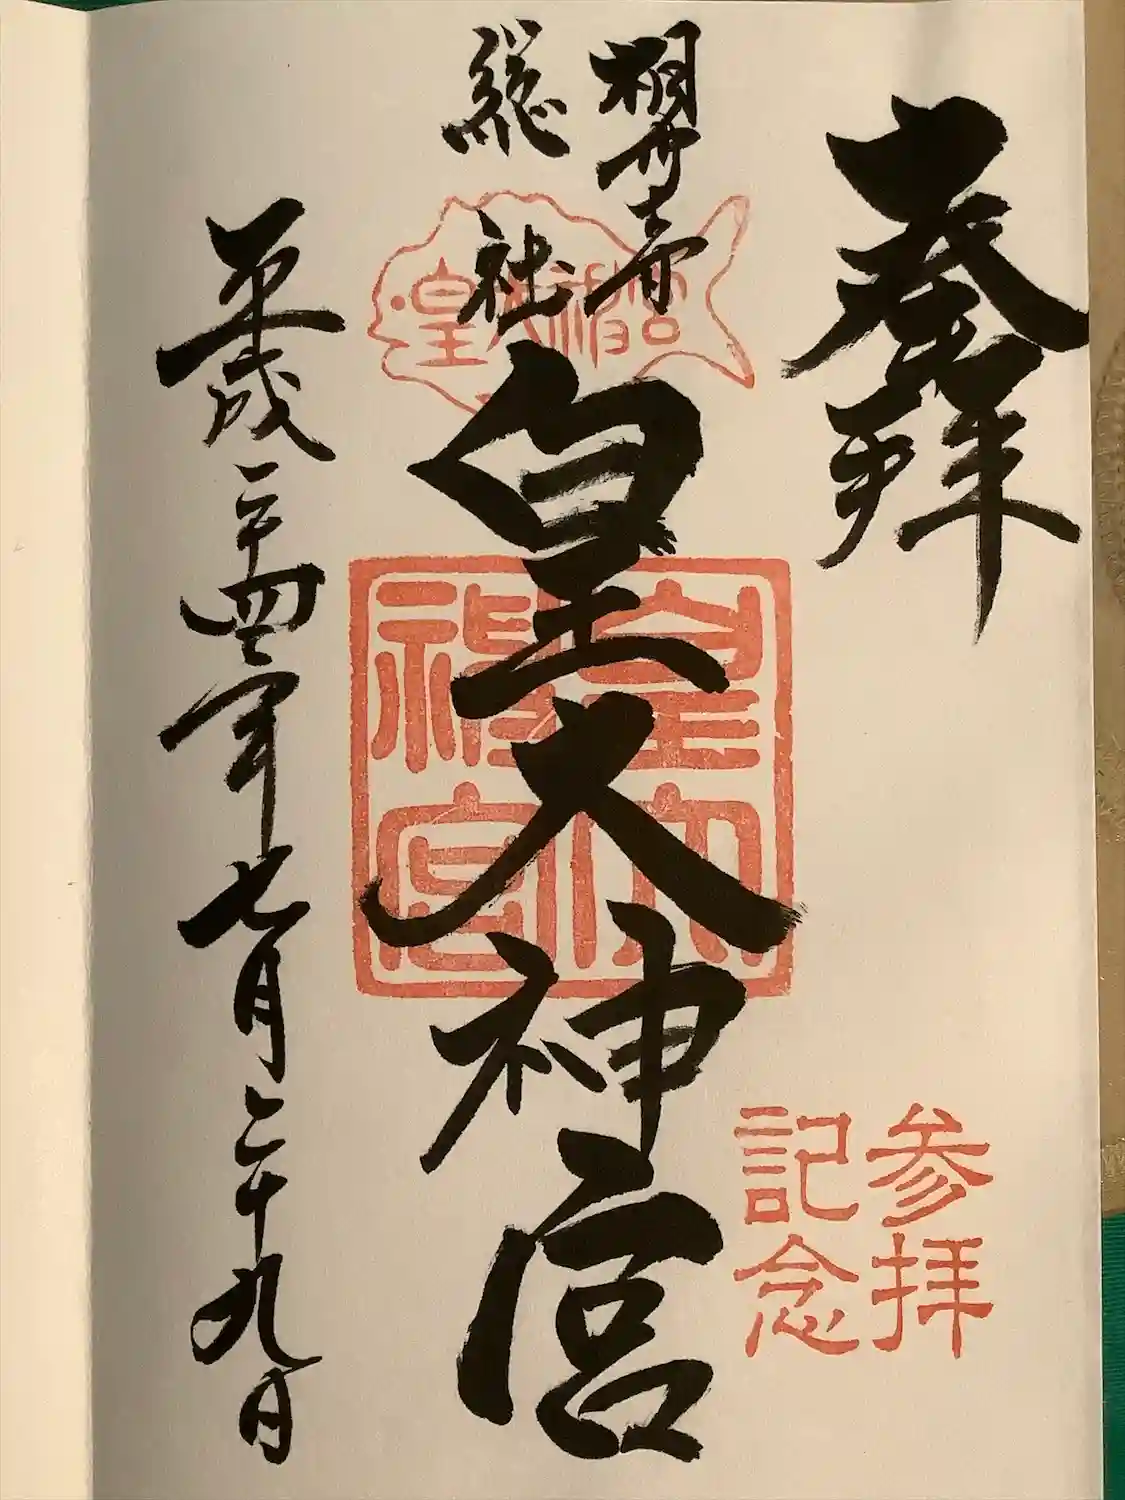 奉拝
相州
総社
皇大神宮
平成二十四年七月二十九日
皇大神宮
皇大
神宮
参拝
記念